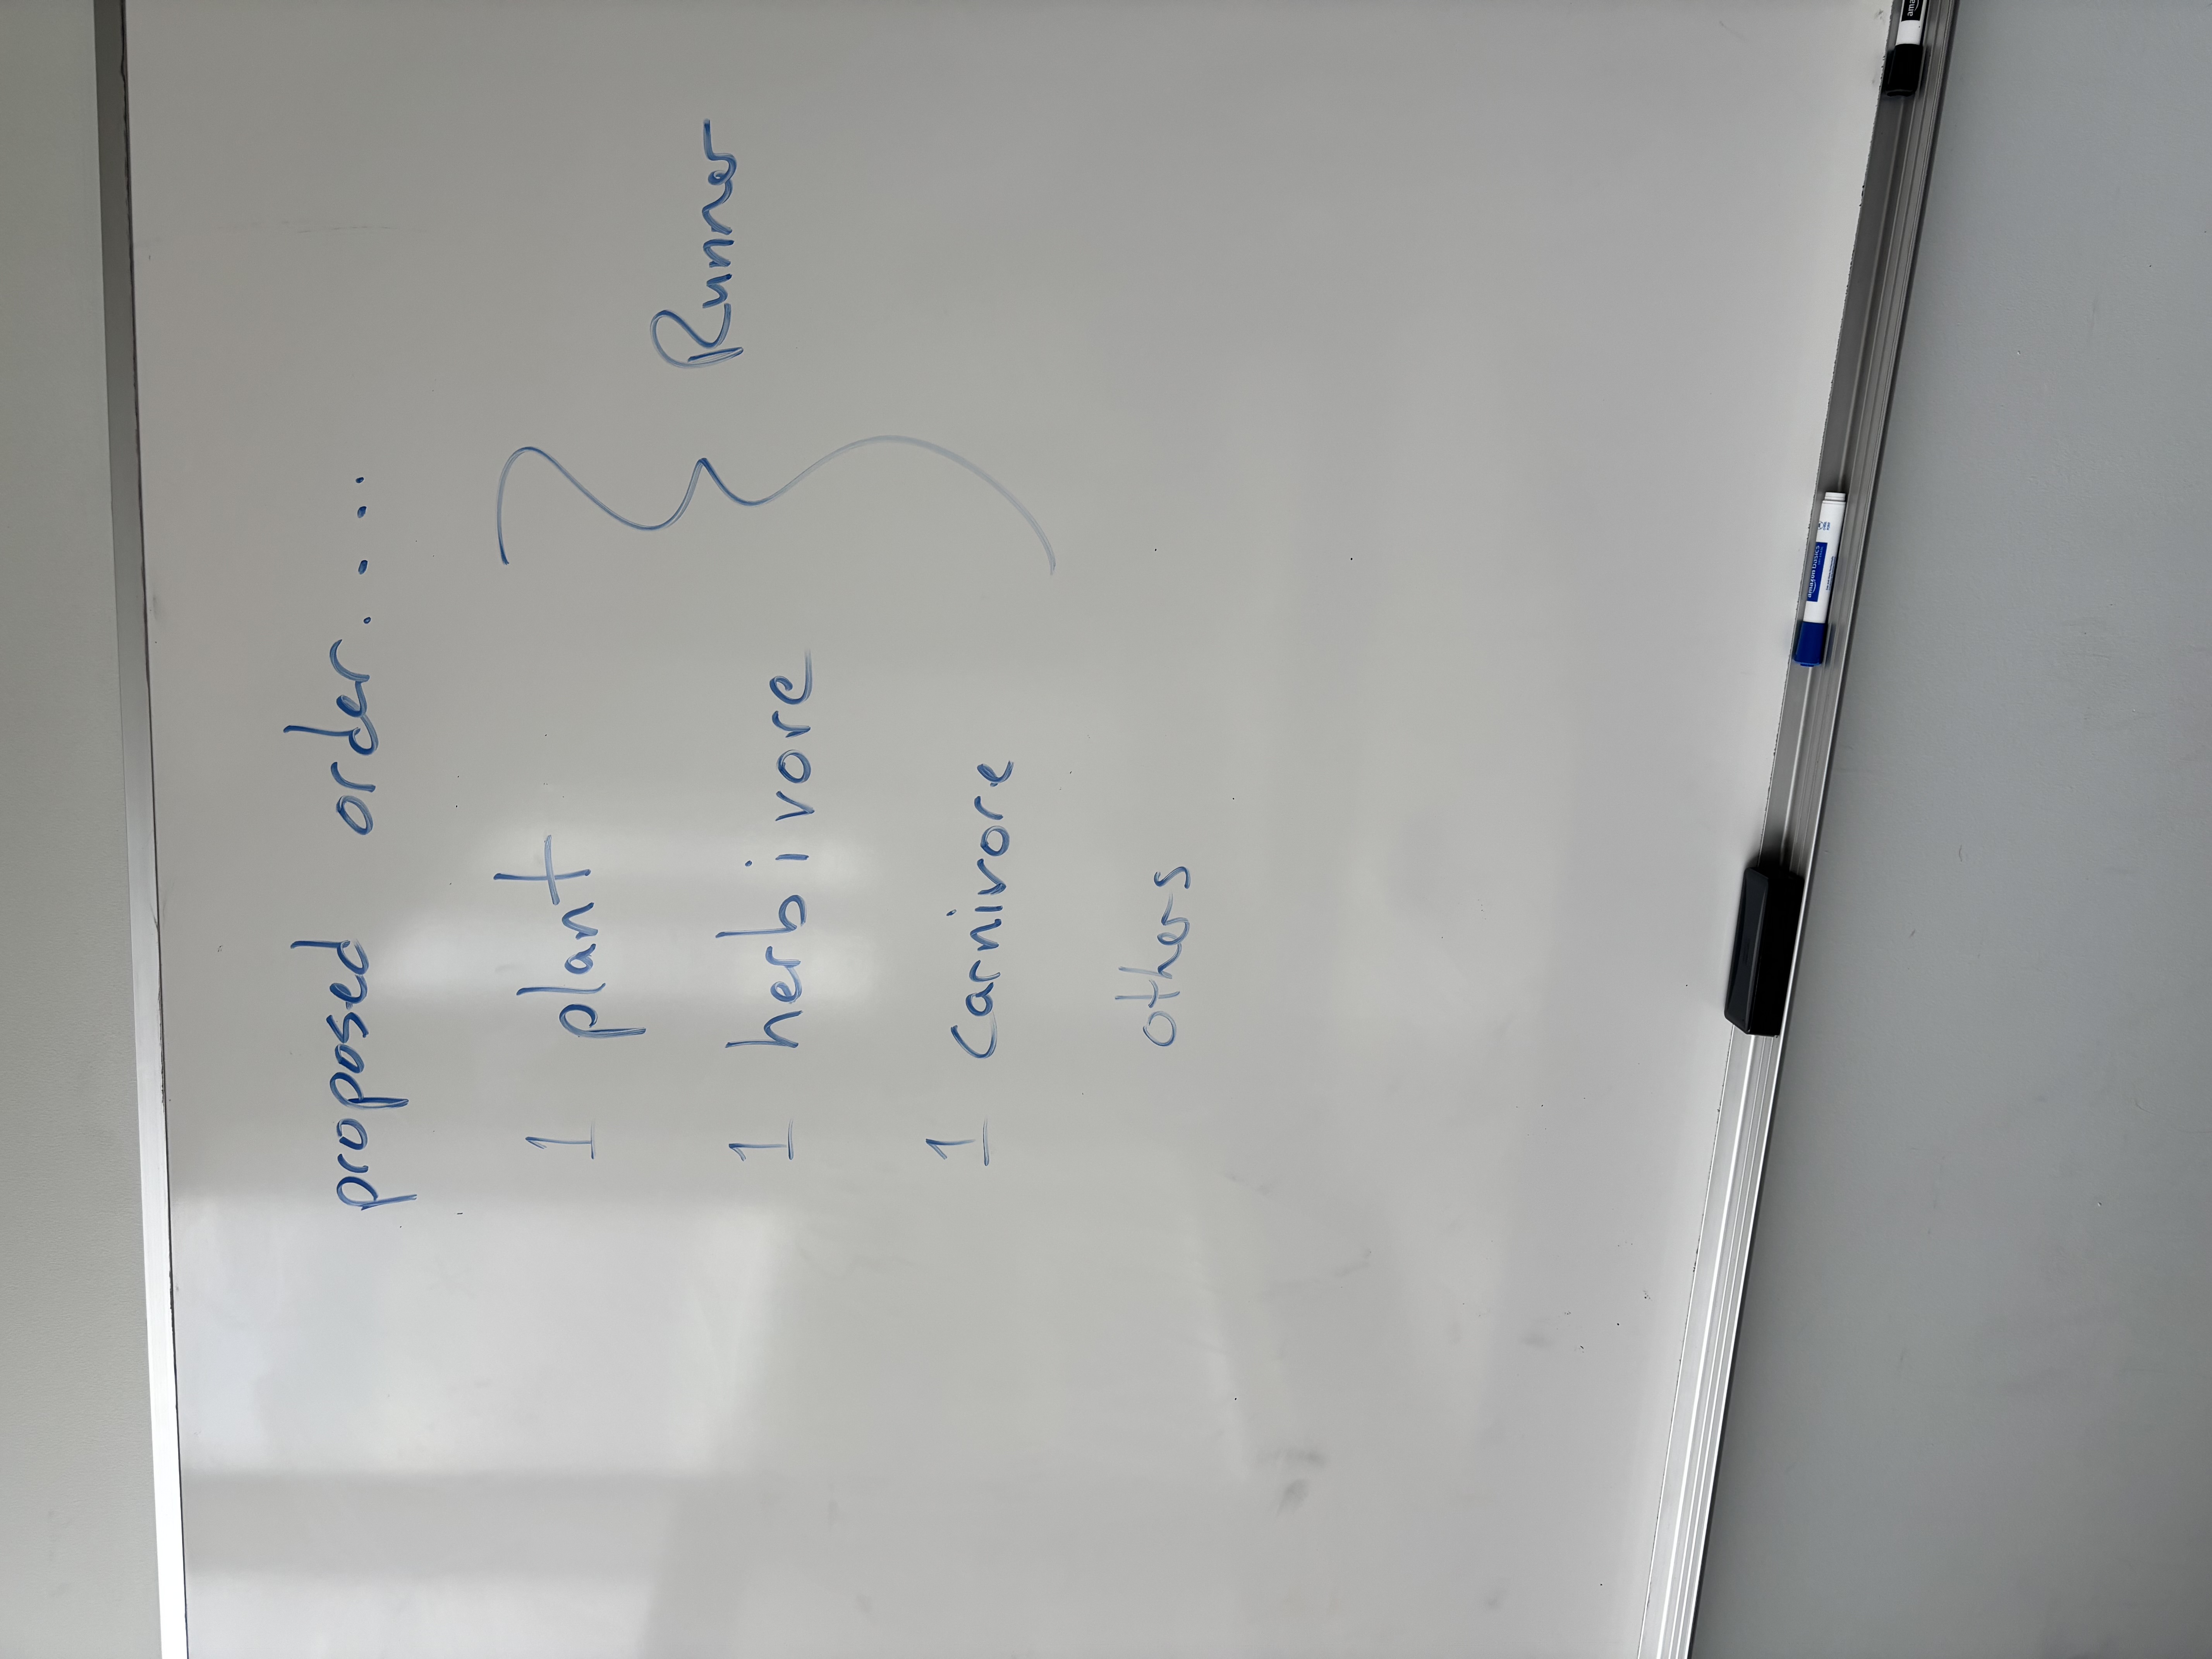 proposed order....
1 plant
1 herbivore
1 carnivore
Runner
others
amazon basics
ama